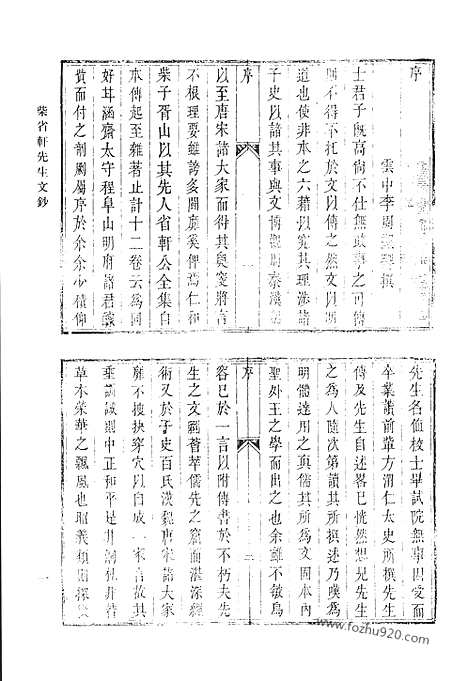 序
雲中李周
撰
士君子旣高尚不仕無政事之可傳
則不得不托於文以傳之然文以明
道也使非本之六藉以究其理涉諸
子史以諳其事與文博觀明秦漢
序
以至唐宋諸大家而得其與窔將言
不根理要雖誇多鬭靡奚俾焉仁和
柴子胥山以其先人省軒公全集自
本傳起至雜著止計十二卷云為同
好苷涵齋太守程阜山明府諸君
貲而付之剞劂屬序於余余少積仰
先生名値校士畢試院無事因受而
卒業讀前輩方渭仁太史所撰先生
傳及先生自述畧已恍然想見先生
之為人隨次第讀其所撰述乃嘆為
明體達用之眞儒其所為文固本內
聖外王之學而出之也余雖不敏烏
序
容已於一言以附傳書於不朽夫先
生之文嗣薈萃儒先之窾而湛深經
術又於子史百氏漢魏唐宋諸大家
靡不搜抉穿穴以自成一家言故其
垂訓誡則中正和平是非詞仕非若
草木榮華之飄風也昭義類
柴省軒先生文鈔
一
www.fozhu920.com